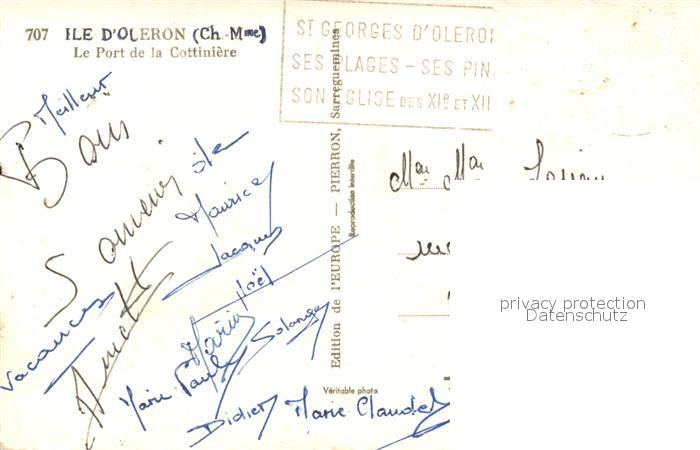 707 ILE D'OLERON (Ch.-Mme)
Le Port de la Cottinière
ST GEORGES D'OLERO
SES PLAGES - SES PIN
SON EGLISE DES XIe ET XII
Meilleur
Bons
Souvenir
de
Maurice
Jacques
Joël
Vacances
Annette
Marie Paule
Solange
Didier
Marie Claude
Edition de l'EUROPE — PIERRON, Sarreguemines
Reproduction interdite
Véritable photo
privacy protection
Datenschutz